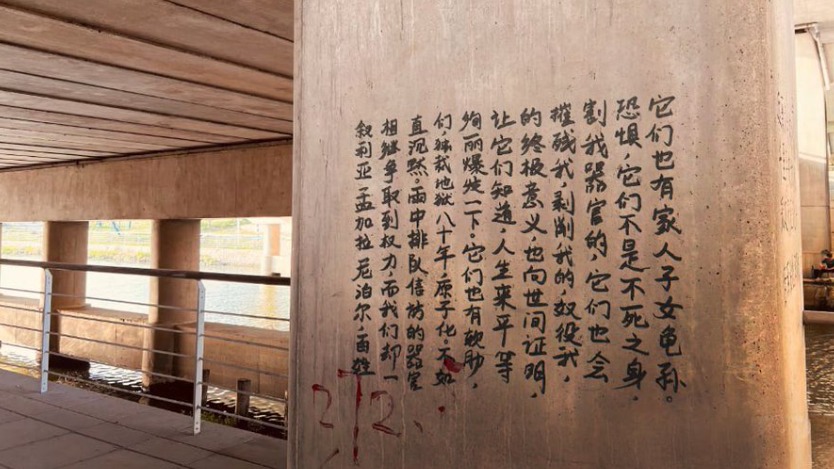 它们也有家人子女龟孙。
恐惧,它们不是不死之身,
割我器官的,它们也会
摧残我,剥削我的奴役我,
的终极意义,也向世间证明,
让它们知道,人生来平等
绚丽爆发一下。它们也有软肋,
们,独裁地狱八十年,原子化。不如
直沉默。雨中排队信访的器官
相继争取到权力,而我们却一
叙利亚,孟加拉,尼泊尔,百姓
272.